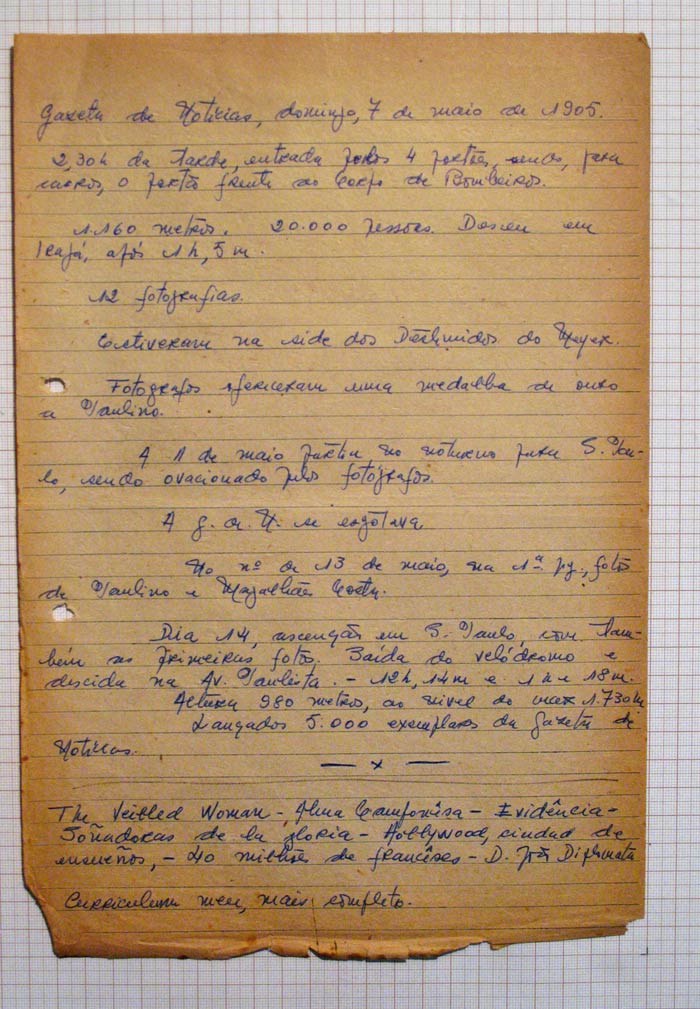 Gazeta de Noticias, domingo, 7 de maio de 1905.
2,30h da tarde, entrada pelos 4 portões, sendo, para
carros, o portão frente ao Corpo de Bombeiros.
1.160 metros. 20.000 pessoas. Desceu em
Icajá, após 1 h, 5 m.
12 fotografias.
Estiveram na side dos Destemidos do Meyer.
Fotografos ofereceram uma medalha de ouro
a Paulino.
A 11 de maio partiu no noturno para S. Pau-
lo, sendo ovacionado pelos fotógrafos.
A g. de N. se esgotava
No nº de 13 de maio, na 1ª pg., fotos
de Paulino e Magalhães Costa.
Dia 14, ascenção em S. Paulo, com tam-
bém as primeiras fotos. Saída do velódromo e
descida na Av. Paulista. - 12h, 14m e 1h e 18m.
Altura 980 metros, ao nivel do mar 1.730m
Lançados 5.000 exemplares da Gazeta de
Noticias.
— x —
The Veilled Woman - Alma Camponêsa - Evidência -
Soñadoras de la gloria - Hollywood, ciudad de
ensueños, - 40 milhões de francêses - D. João Diplomata
Curriculum meu, mais completo.